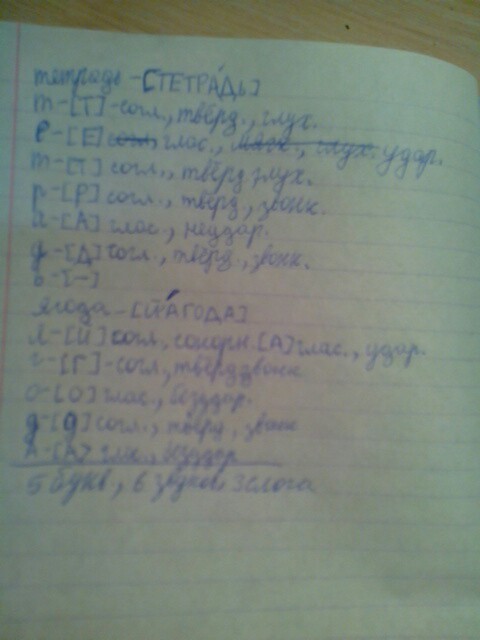 тетрадь - [ТЕТРА́ДЬ]
т - [Т] - согл., твёрд., глух.
е - [Е] согл, глас., мягк., глух. удар.
т - [Т] согл., твёрд, глух.
р - [Р] согл., твёрд, звонк.
а - [А] глас., неудар.
д - [Д] согл., твёрд., звонк.
ь - [-]
ягода - [Й'А́ГОДА]
Я - [Й] согл, сонорн. [А] глас., удар.
г - [Г] - согл, твёрд, звонк
о - [О] глас., безудар.
д - [д] согл., твёрд, звонк
А - [А] глас., безудар
5 букв, 6 звуков, 3 слога